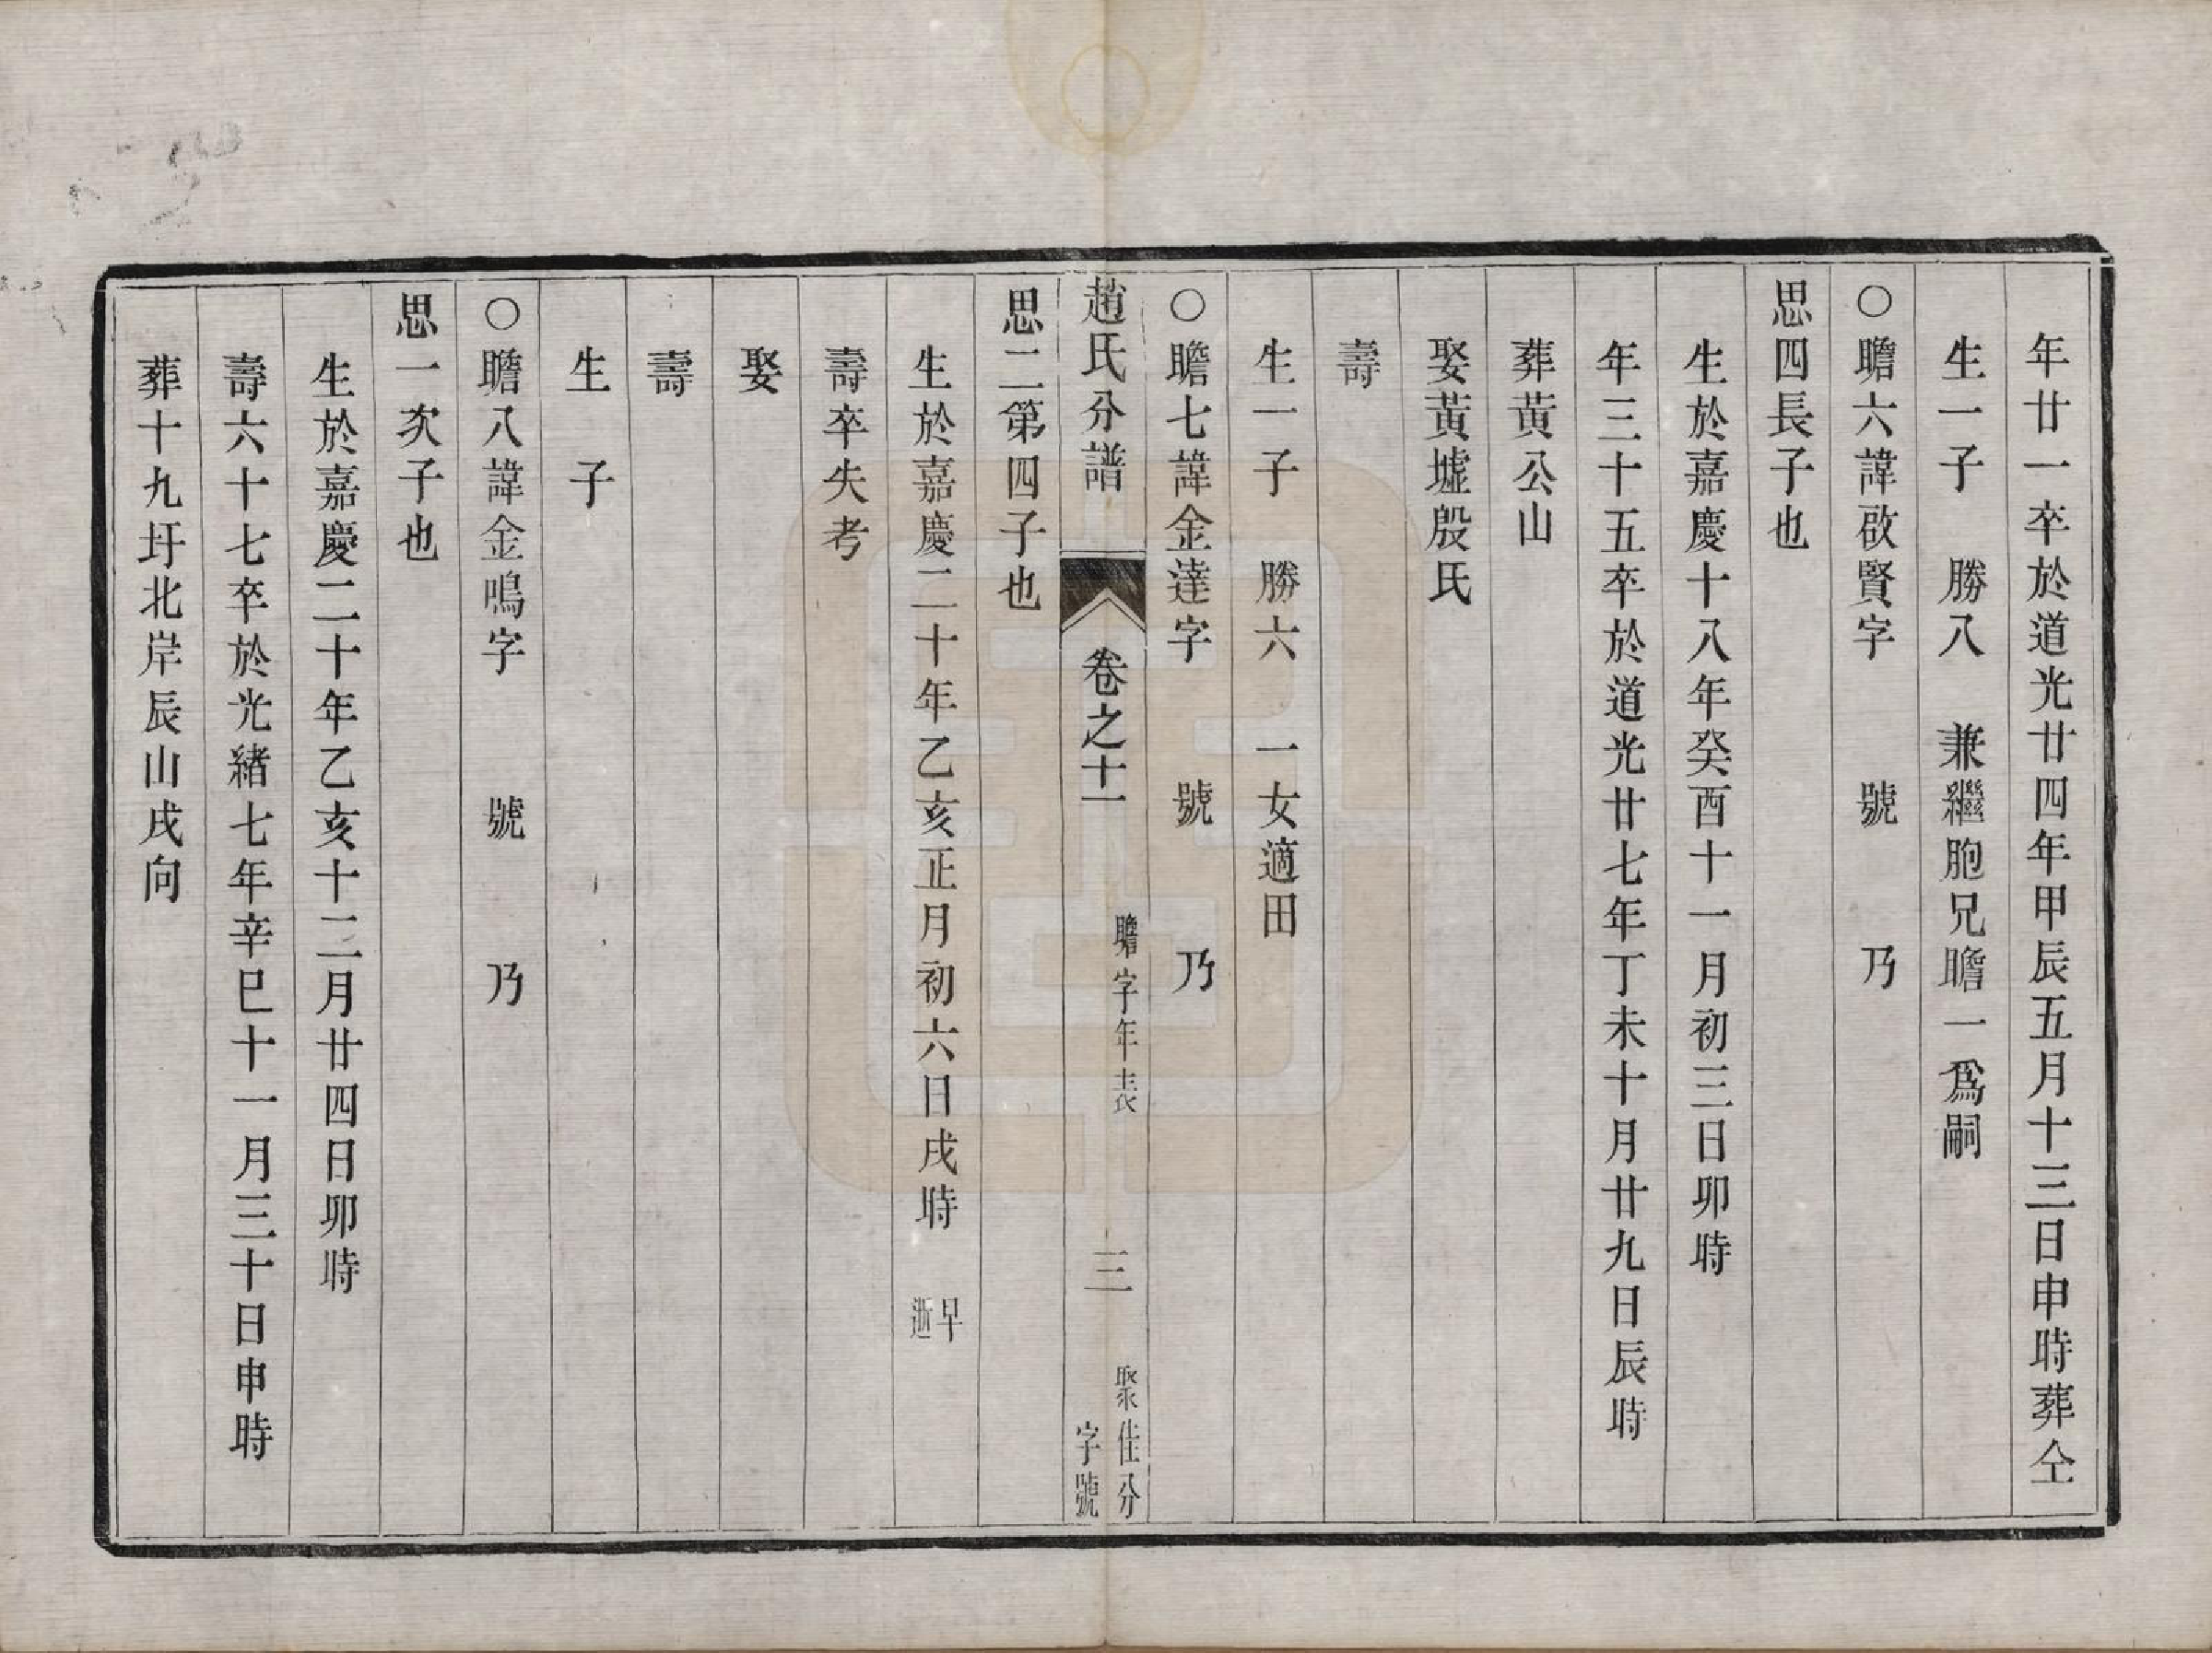 年廿一卒於道光廿四年甲辰五月十三日申時葬仝
生一子　勝八　兼繼胞兄瞻一爲嗣
○瞻六諱啟賢字　號　乃
思四長子也
生於嘉慶十八年癸酉十一月初三日卯時
年三十五卒於道光廿七年丁未十月廿九日辰時
葬黄公山
娶黃墟殷氏
壽
生一子　勝六　一女適田
○瞻七諱金達字　號　乃
趙氏分譜　卷之十一　瞻字年表　三　聚佳分字號
思二第四子也
生於嘉慶二十年乙亥正月初六日戌時　早逝
壽卒失考
娶
壽
生　子
○瞻八諱金鳴字　號　乃
思一次子也
生於嘉慶二十年乙亥十二月廿四日卯時
壽六十七卒於光緒七年辛巳十一月三十日申時
葬十九圩北岸辰山戌向